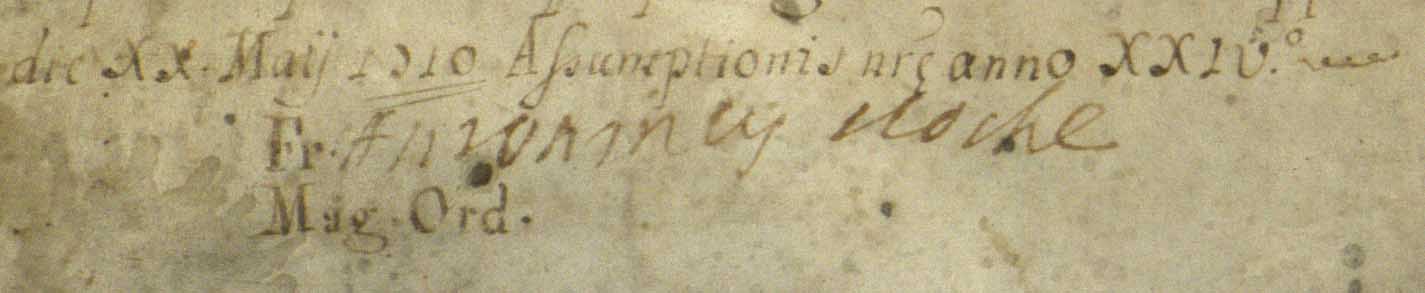 die XX. Maij 1710 Assumptionis nrę anno XXIV.º
Fr. Antoninus Cloche
Mag. Ord.